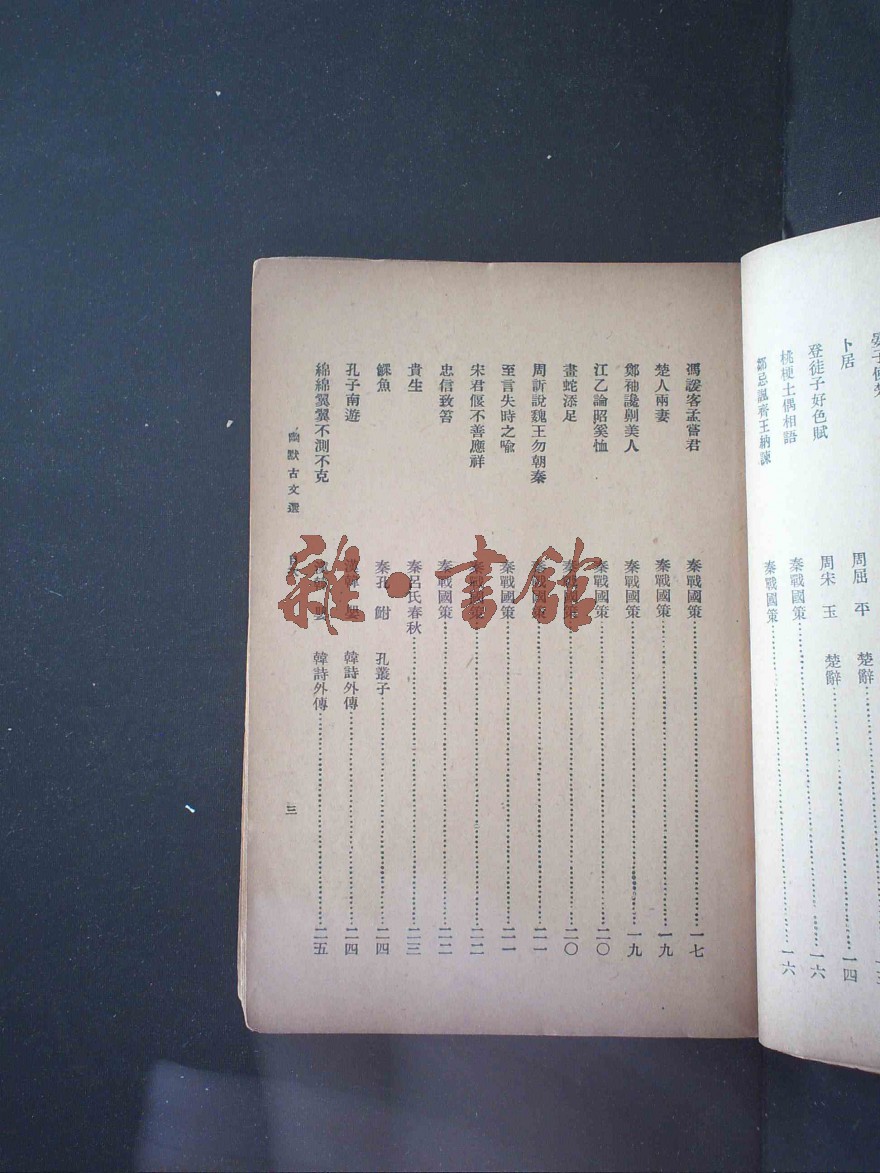 卜居 周屈 平 楚辭 一四
登徒子好色賦 周宋 玉 楚辭 一六
桃梗土偶相語 秦戰國策 一六
鄒忌諷齊王納諫 秦戰國策
馮諼客孟嘗君 秦戰國策 一七
楚人兩妻 秦戰國策 一九
鄭袖讒劓美人 秦戰國策 一九
江乙論昭奚恤 秦戰國策 二〇
畫蛇添足 秦戰國策 二〇
周訢說魏王勿朝秦 秦戰國策 二一
至言失時之喻 秦戰國策 二一
宋君偃不善應祥 秦戰國策 二二
忠信致笞 秦戰國策 二二
貴生 秦呂氏春秋 二三
鰥魚 秦孔 鮒 孔叢子 二四
孔子南遊 漢韓 嬰 韓詩外傳 二四
綿綿翼翼不測不克 漢韓 嬰 韓詩外傳 二五
幽默古文選 目次 三
雜·書館